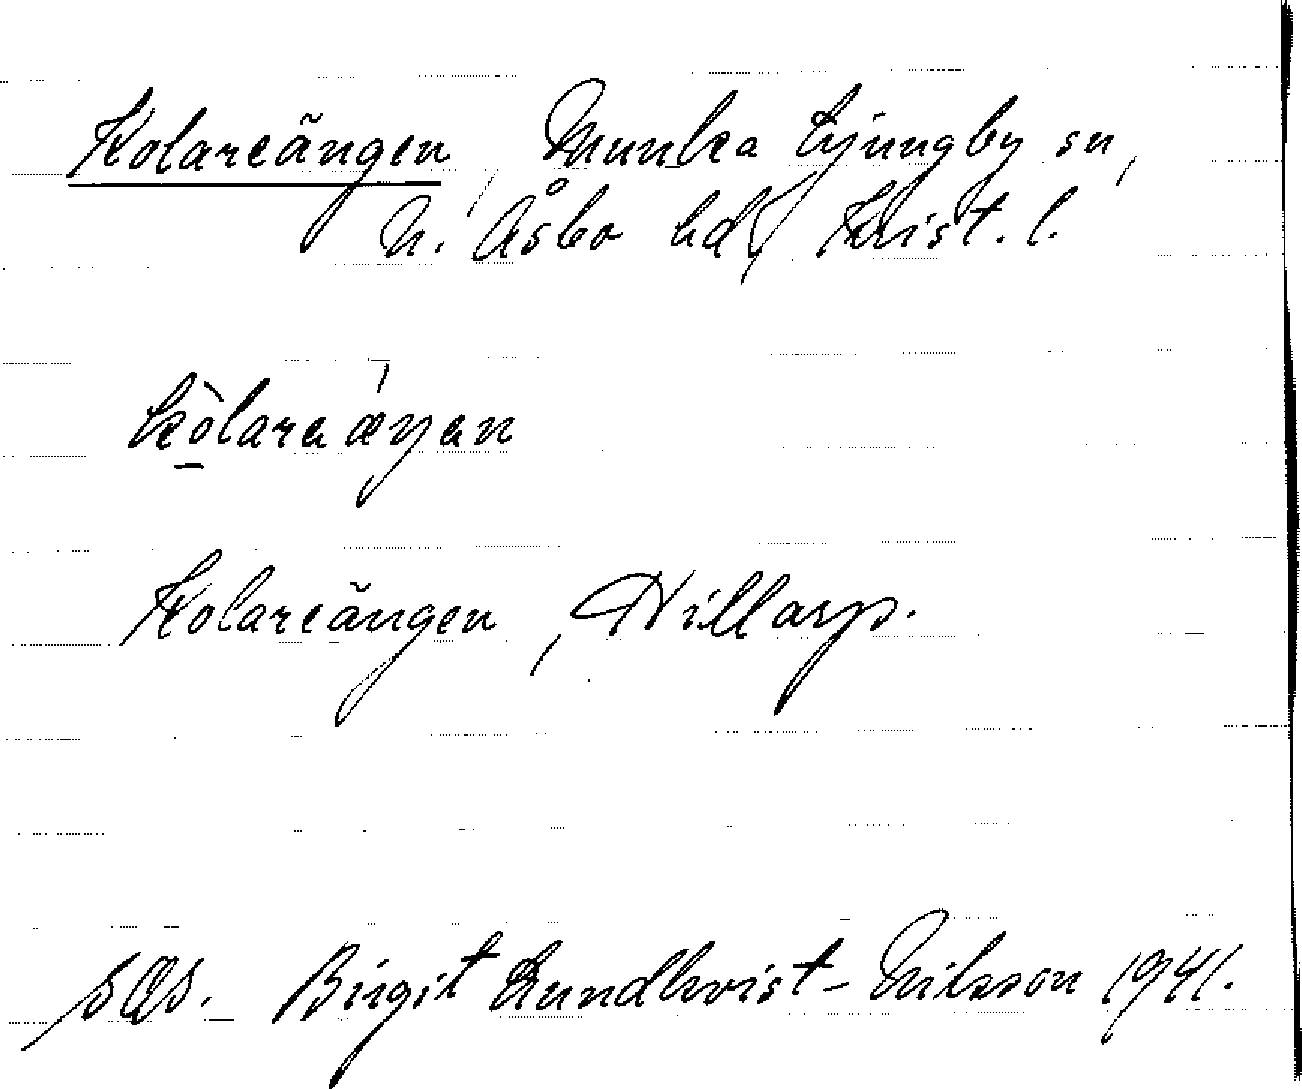 Kolareängen, Munka Ljungby sn,
N. Åsbo hd, Krist. l.
Kolareängen, Hillarp.
Birgit Lundkvist-Nilsson 1941.